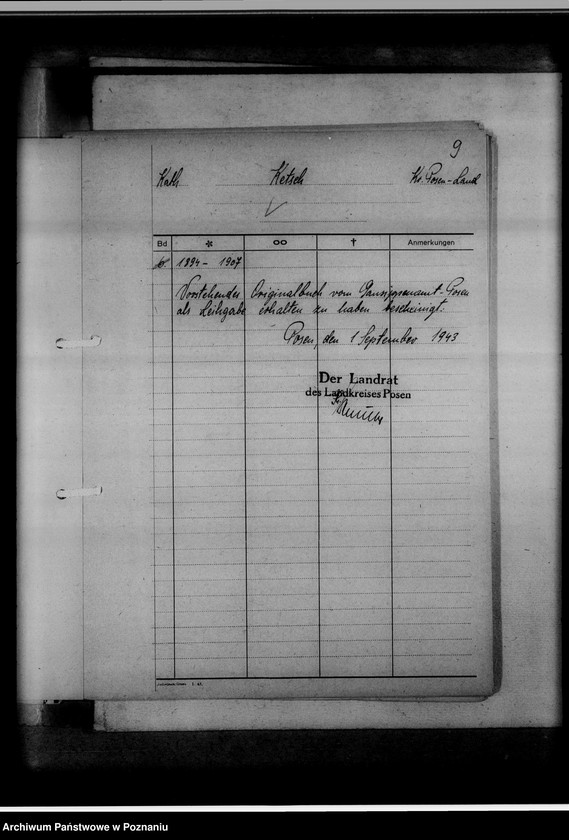 9
Kath. Ketsch Kr. Posen-Land
Bd * ∞ † Anmerkungen
6. 1894 - 1907
Vorstehendes Originalbuch vom Gausippenamt-Posen
als Leihgabe erhalten zu haben bescheinigt.
Posen, den 1 September 1943
Der Landrat
des Landkreises Posen
Archiwum Państwowe w Poznaniu